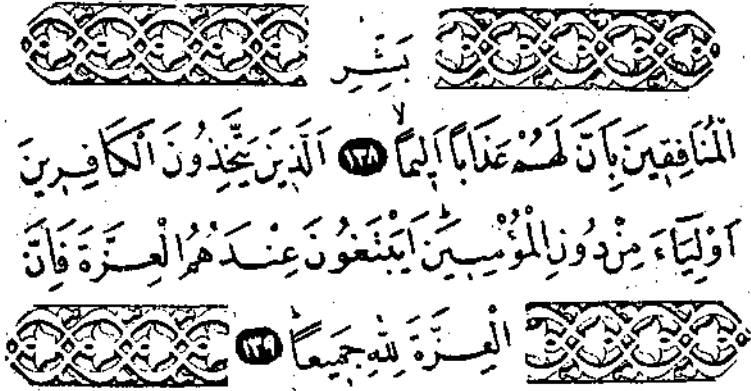 بَشِّرِ
الْمُنَافِقِينَ بِاَنَّ لَهُمْ عَذَاباً اَلِيماًۙ ﴿١٣٨﴾ اَلَّذِينَ يَتَّخِذُونَ الْكَافِرِينَ
اَوْلِيَٓاءَ مِنْ دُونِ الْمُؤْمِنِينَۜ اَيَبْتَغُونَ عِنْدَهُمُ الْعِزَّةَ فَاِنَّ
الْعِزَّةَ لِلّٰهِ جَمِيعاًۜ ﴿١٣٩﴾